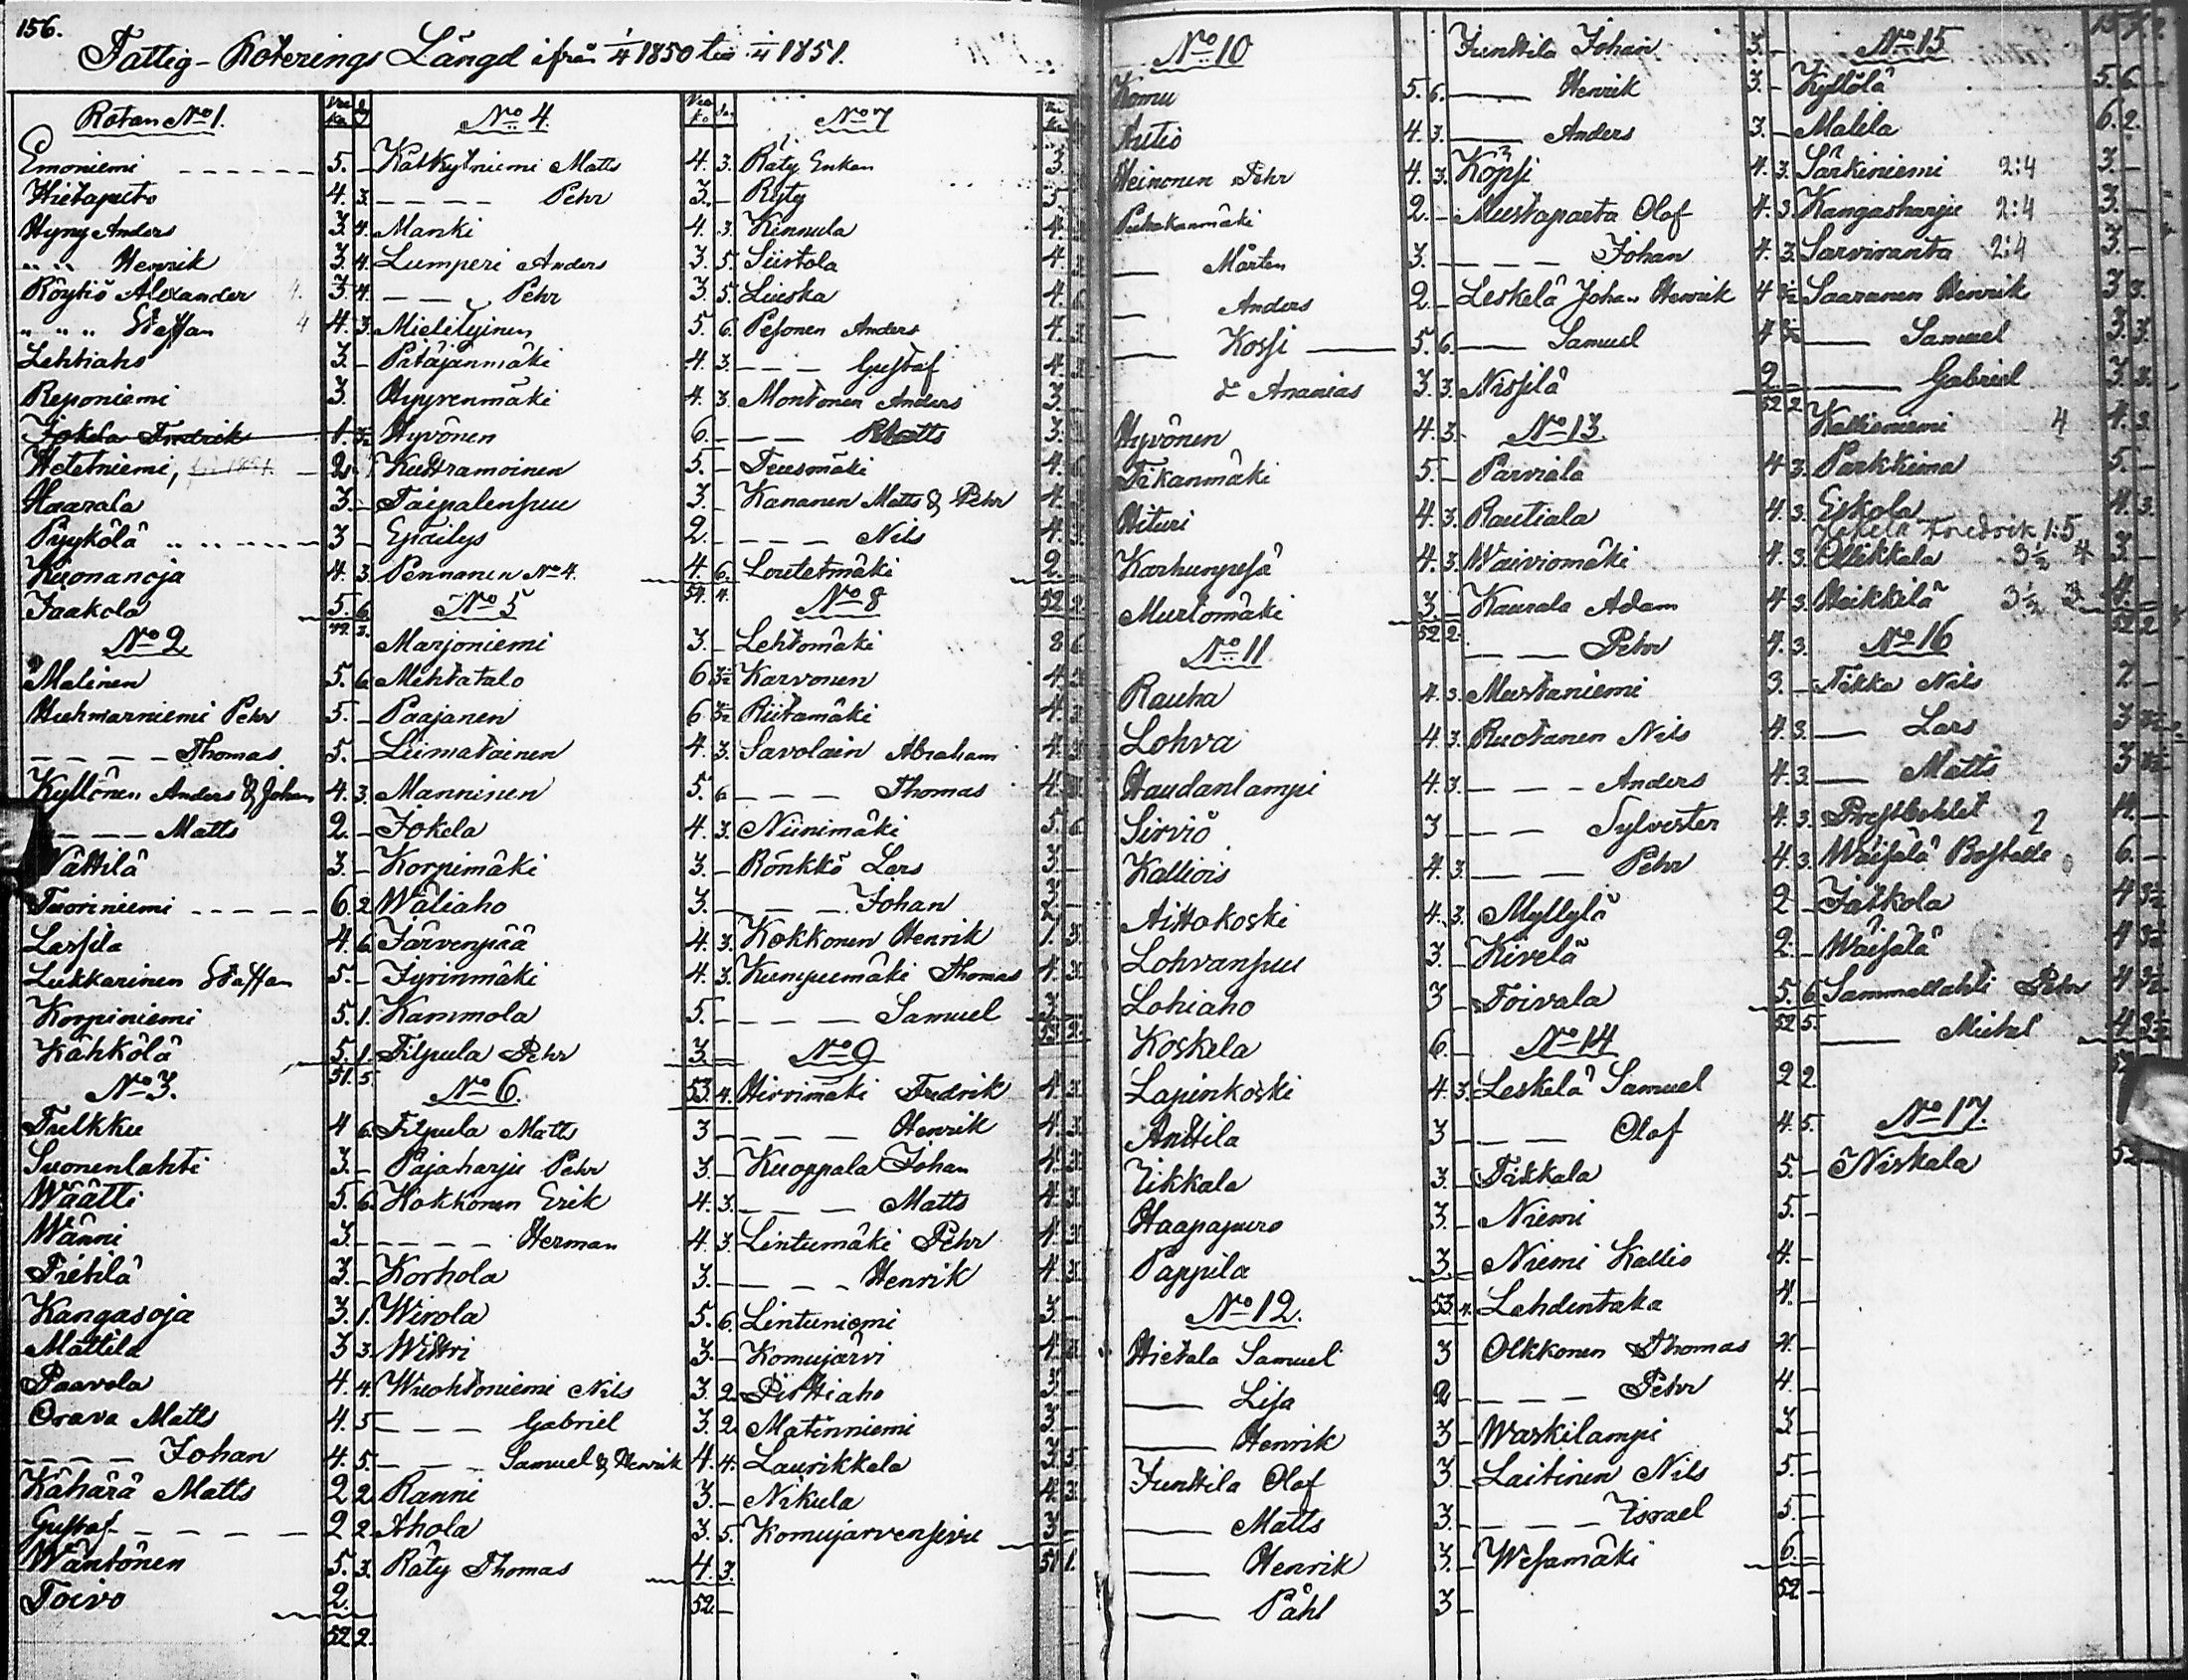 156.
Fattig-Roterings Längd ifrån 1/4 1850 till 1/4 1851.
Rotan No 1.
Emoniemi 5. -
Hietapuro 4. 3.
Hyry Anders 3 4.
" " Henrik 3 4.
Röytiö Alexander 3 4.
" " " Staffan 4. 3.
Lehtiaho 3 -
Reponiemi 3.
Jokela Fredrik
Heteniemi, 2
Haarala 3. -
Pyykölä 3 -
Kuonanoja 4. 3.
Jaakola 5. 6.
49. 3.
No 2
Malinen 5. 6
Huhmarniemi Pehr 5. -
- - - - Thomas 5. -
Kyllönen Anders & Johan 4. 3.
- - - Matts 2. -
Wättilä 3. -
Tuoriniemi 6. 2
Lessila 4. 6
Lukkarinen Staffan 5. -
Korpiniemi 5. 1.
Kähkölä 5. 1.
51. 5
No 3.
Tulkku 4 6.
Suonenlahti 3. -
Wäätti 5. 6.
Wänni 3. -
Tietilä 3. -
Kangasoja 3. 1.
Mattila 3 3.
Paavola 4. 4.
Orava Matts 4. 5
- - - Johan 4. 5.
Kähärä Matts 2 2
Gustaf - - - - 2 2.
Wäntönen 5. 3.
Toivo 2.
52 2.
No 4.
Katkytniemi Matts 4. 3.
- - - - Pehr 3. -
Manki 4. 3.
Lumperi Anders 3. 5.
- - Pehr 3. 5.
Mielityinen 5. 6.
Pitäjänmäki 4. 3.
Hyyrenmäki 4. 3.
Hyvönen 6. -
Kuttramoinen 5. -
Taipalensuu 3. -
Ejdilys 2. -
Pennanen No 4. 4. 6.
54. 4.
No 5
Marjoniemi 3. -
Mehtätalo 6 3½
Paajanen 6 3½
Liimatainen 4. 3.
Manninen 5. 6
Jokela 4. 3.
Korpimäki 3. -
Wäliaho 3. -
Järvenpää 4. 3.
Jyrinmäki 4. 3.
Kammola 5. -
Filpula Pehr 3. -
53. 4.
No 6.
Filpula Matts 3 -
Pajaharju Pehr 3. -
Kokkonen Erik 4. 3.
- - - - Herman 4. 3.
Korhola 3. -
Wirola 5. 6.
Wittri 3. -
Wuohtoniemi Nils 3. 2
- - - Gabriel 3. 2
- - - Samuel & Henrik 4. 4.
Ranni 3. -
Ahola 3. 5.
Räty Thomas 4. 3.
52. -
No 7
Räty Enkan 3
Ryty 5
Kinnula 4. 3
Siistola 4. 3.
Lieska 4. 6
Pesonen Anders 4. 3.
- - - Gustaf 4. 3.
Montonen Anders 3. -
- - Matts 3.
Teusmäki 4. 6
Kananen Matts & Pehr 4. 3
- - - Nils 4. 3
Loutetmäki 2. -
52 2.
No 8
Lehtomäki 8 6
Karvonen 4. 3.
Riitamäki 4. 3.
Savolain Abraham 4. 3.
- - - Thomas 4. 3.
Niinimäki 5. 6.
Rönkkö Lars 3. -
- - - Johan 3. -
Kokkonen Henrik 1. 3.
Kumpumäki Thomas 4. 3.
- - - Samuel 3. -
53 2.
No 9
Hirvimäki Fredrik 4. 3.
- - - Henrik 4. 3.
Kuoppala Johan 4. 3.
- - - Matts 4. 3.
Lintumäki Pehr 4. 3.
- - - Henrik 4. 3.
Lintuniemi 3. -
Komujärvi 4. 3.
Pirttiaho 3. -
Matinniemi 3. -
Laurikkala 3. 5.
Nikula 4. 3.
Komujärvensivu 3 -
51 1.
No 10
Komu 5. 6.
Autio 4. 3.
Heinonen Pehr 4. 3.
Puhakanmäki 2. -
— Mårten 3. -
— Anders 2. -
— Kossi — 5. 6.
D Ananias 3. 3.
Hyvönen 4. 3.
Tekanmäki 5. -
Hituri 4. 3.
Karhunpesä 4. 3.
Murtomäki 3. -
52 2.
No 11
Rauha 4. 3.
Lohva 4. 3.
Haudanlampi 4. 3.
Sirviö 3 -
Kalliois 4. 3.
Aittokoski 4. 3.
Lohvansuu 3. -
Lohiaho 3 -
Koskela 6. -
Lapinkoski 4. 3.
Anttila 3 -
Tikkala 3. -
Haapapuro 3. -
Pappila 3. -
53. 4.
No 12.
Hietala Samuel 3
— Lisa 2
— Henrik 3 -
Junttila Olof 3. -
— Matts 3. -
— Henrik 3. -
— Påhl 3 -
Junttila Johan 3. -
— Henrik 3. -
— Anders 3. -
Köpsi 4. 3.
Mustaparta Olof 4. 3
- - - Johan 4. 3.
Leskelä Johan Henrik 4 3½
— Samuel 4 3½
Nissilä 2 -
52 2
No 13.
Parviala 4 3.
Rautiala 4 3.
Waiviomäki 4. 3.
Kaurala Adam 4. 3.
- - - Pehr 4. 3.
Mustaniemi 3. -
Ruotanen Nils 4. 3.
- - - Anders 4. 3.
- - - Sylvester 4. 3.
- - - Pehr 4. 3.
Myllylä 2 -
Kivelä 2. -
Toivala 5. 6
52 5.
No 14
Leskelä Samuel 2 2.
- - - Olof 4. 5.
Taskala 5. -
Niemi 5. -
Niemi Kallio 4. -
Lehdentaka 4. -
Olkkonen Thomas 4. -
- - - Pehr 4. -
Waskilampi 3. -
Laitinen Nils 5. -
- - - Israel 5. -
Wesamäki 6. -
52. -
No 15
Kyllölä 5. 6.
Malila 6. 2.
Särkiniemi 2:4 3. -
Kangasharju 2:4 3. -
Sarviranta 2:4 3. -
Saaranen Henrik 3 3.
— Samuel 3. 3.
— Gabriel 3. 3.
Kallioniemi 4 4. 3.
Parkkima 5. -
Eskola 4. 3.
Jokela Fredrik 1:5
Ollikkala 3½ 4 3. -
Heikkilä 3½ 4. -
52 2
No 16
Tikka Nils 2 -
— Lars 3 3½
— Matts 3 3½
Prestbohlet 2 4. -
Waisälä Boställe 6. -
Jätkola 4 3½
Waisälä 4 3½
Sammallahti Pehr 4 3½
— Mickel 4. 3½
No 17.
Niskala 52 -